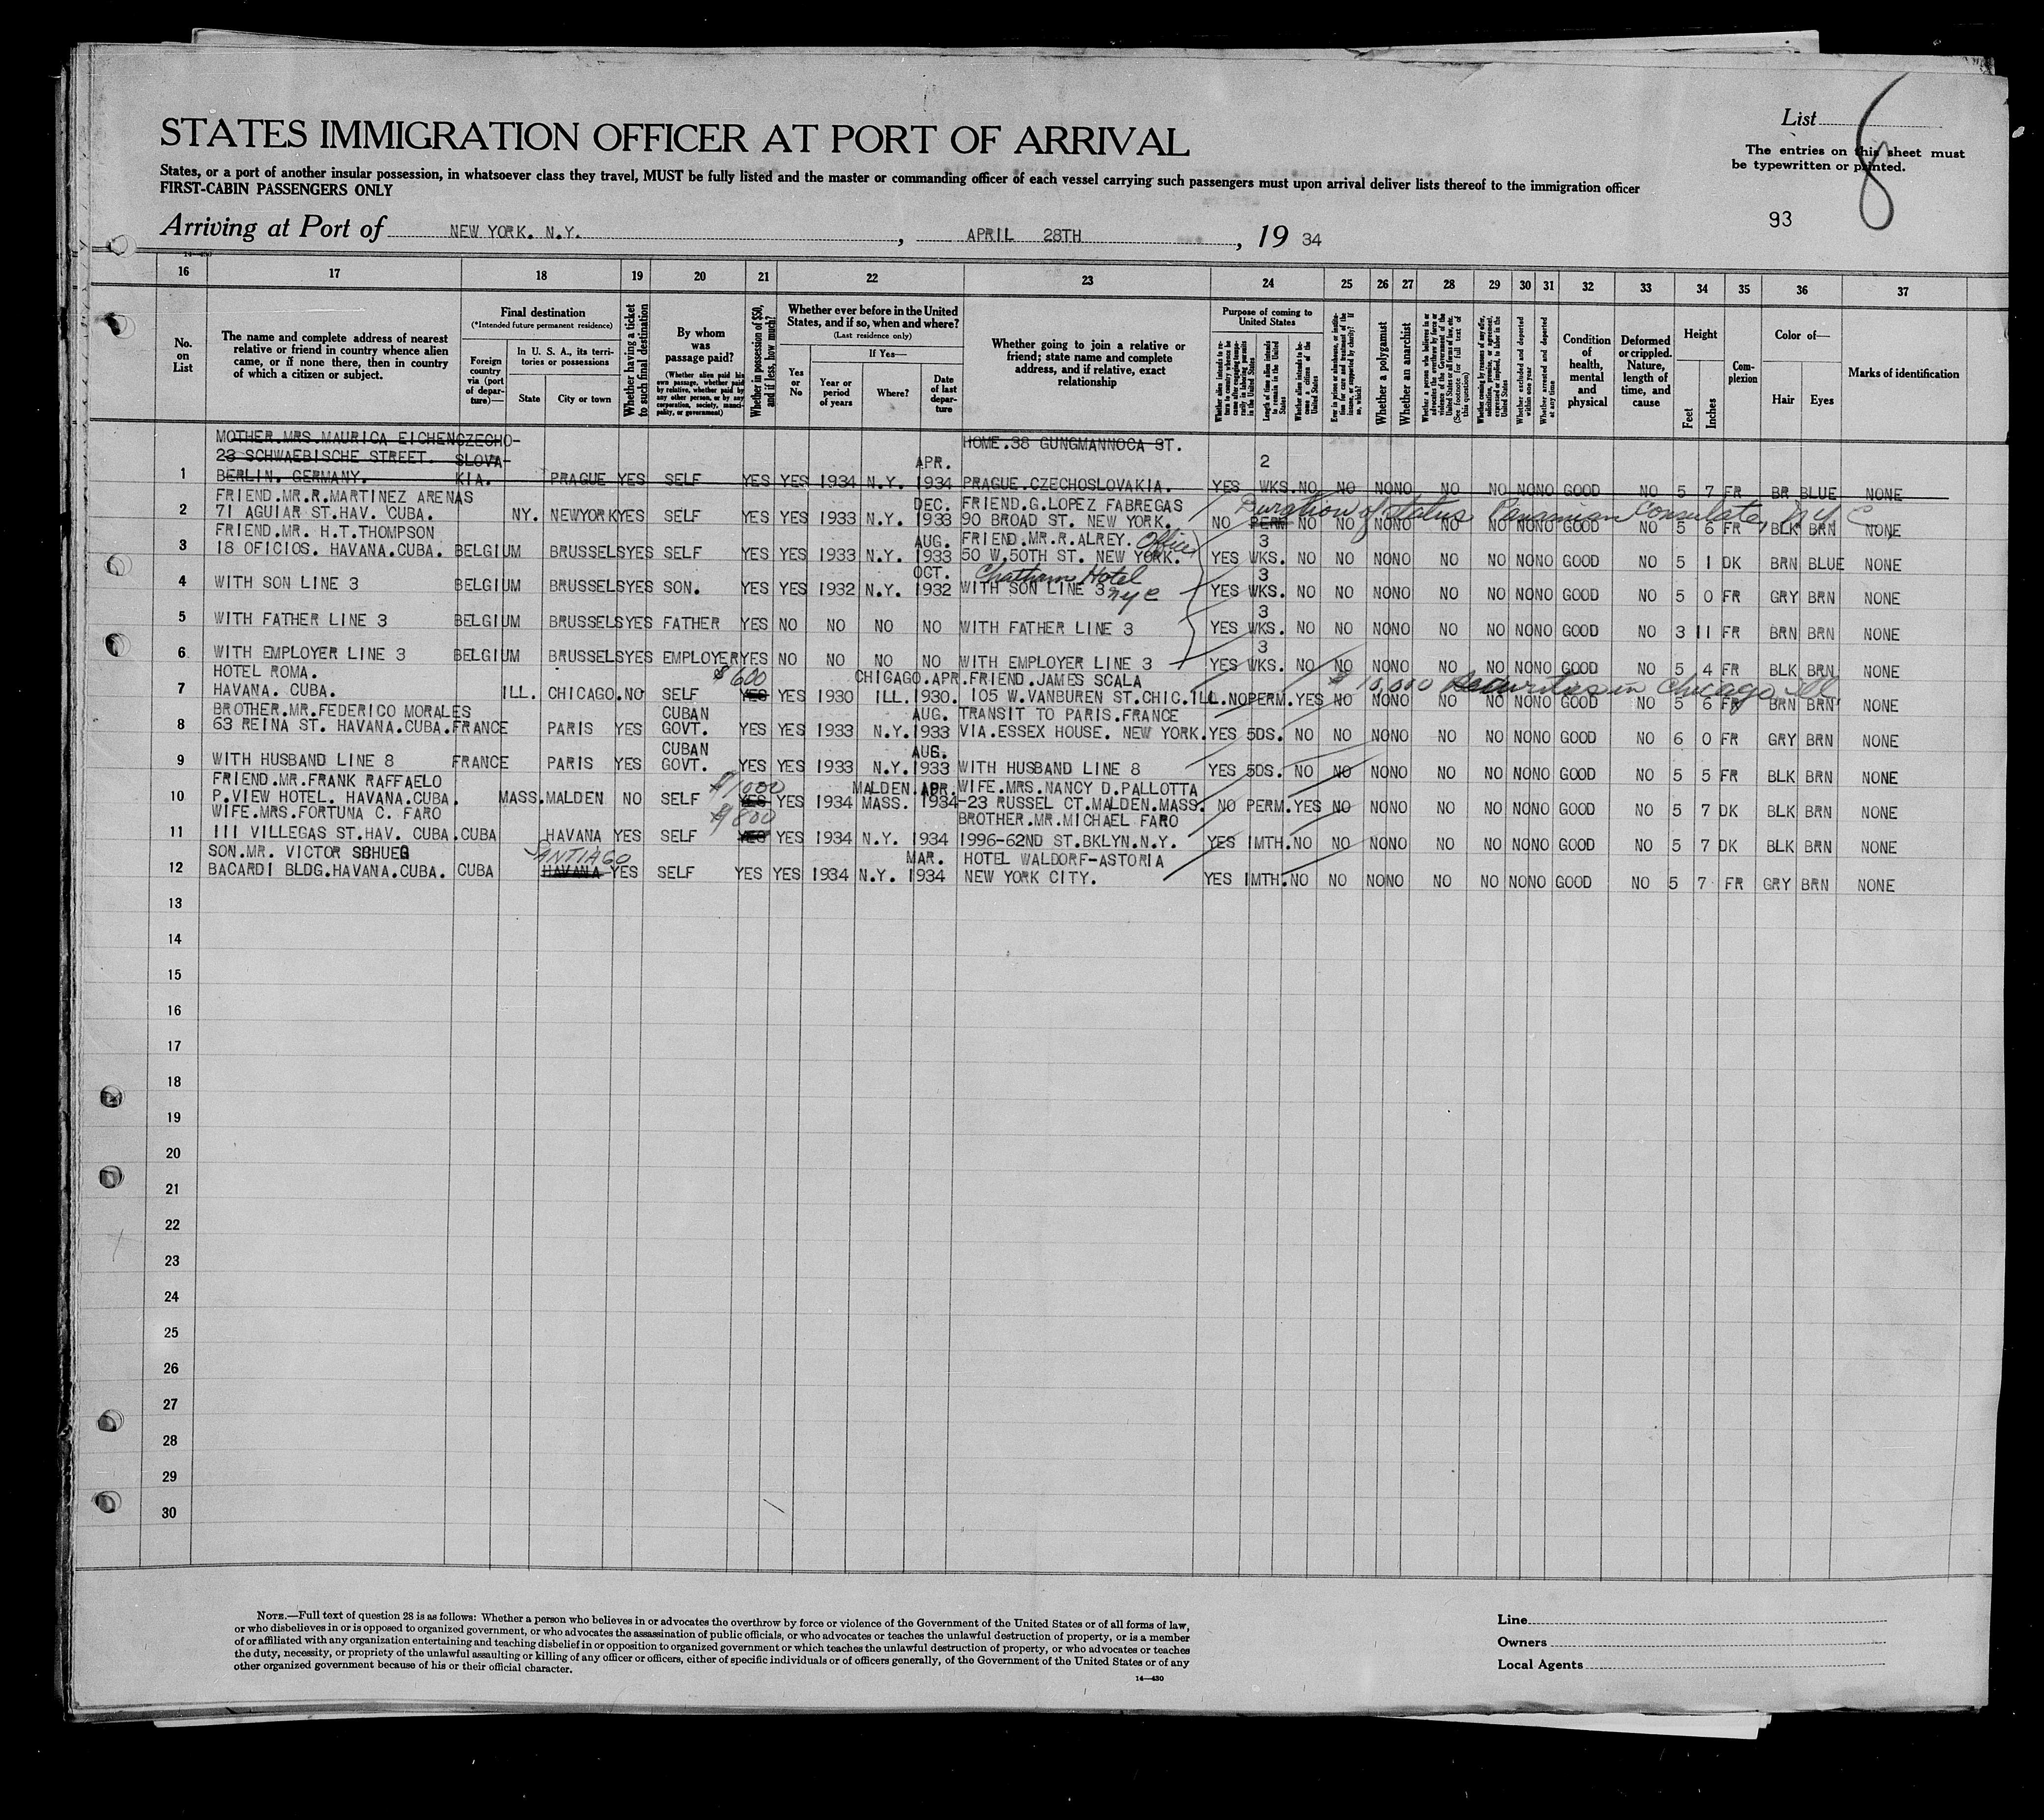 List 8
STATES IMMIGRATION OFFICER AT PORT OF ARRIVAL
The entries on this sheet must
be typewritten or printed.
States, or a port of another insular possession, in whatsoever class they travel, MUST be fully listed and the master or commanding officer of each vessel carrying such passengers must upon arrival deliver lists thereof to the immigration officer
FIRST-CABIN PASSENGERS ONLY
93
Arriving at Port of NEW YORK. N.Y. , APRIL 28TH , 19 34
14—430
16 17 18 19 20 21 22 23 24 25 26 27 28 29 30 31 32 33 34 35 36 37
No. on List
The name and complete address of nearest relative or friend in country whence alien came, or if none there, then in country of which a citizen or subject.
Final destination
(*Intended future permanent residence)
Foreign country via (port of departure)—
In U. S. A., its territories or possessions
State
City or town
Whether having a ticket to such final destination
By whom was passage paid?
(Whether alien paid his own passage, whether paid by relative, whether paid by any other person, or by any corporation, society, municipality, or government)
Whether in possession of $50, and if less, how much?
Whether ever before in the United States, and if so, when and where?
(Last residence only)
Yes or No
If Yes—
Year or period of years
Where?
Date of last departure
Whether going to join a relative or friend; state name and complete address, and if relative, exact relationship
Purpose of coming to United States
Whether alien intends to return to country whence he came after engaging temporarily in laboring pursuits in the United States
Length of time alien intends to remain in the United States
Whether alien intends to become a citizen of the United States
Ever in prison or almshouse, or institution for care and treatment of the insane, or supported by charity? If so, which?
Whether a polygamist
Whether an anarchist
Whether a person who believes in or advocates the overthrow by force or violence of the Government of the United States or all forms of law, etc. (See footnote for full text of this question)
Whether coming by reasons of any offer, solicitation, promise, or agreement, expressed or implied, to labor in the United States
Whether excluded and deported within one year
Whether arrested and deported at any time
Condition of health, mental and physical
Deformed or crippled. Nature, length of time, and cause
Height
Feet
Inches
Complexion
Color of—
Hair
Eyes
Marks of identification
MOTHER.MRS.MAURICA EICHEN CZECHO- HOME.38 GUNGMANNOCA ST.
23 SCHWAEBISCHE STREET. SLOVA- APR. 2
1 BERLIN. GERMANY. KIA. PRAGUE YES SELF YES YES 1934 N.Y. 1934 PRAGUE.CZECHOSLOVAKIA. YES WKS. NO NO NO NO NO NO NO NO GOOD NO 5 7 FR BR BLUE NONE
FRIEND.MR.R.MARTINEZ ARENAS DEC. FRIEND.G.LOPEZ FABREGAS Duration of status Panamian Consulate, N Y C
2 71 AGUIAR ST.HAV. CUBA. NY. NEWYORK YES SELF YES YES 1933 N.Y. 1933 90 BROAD ST. NEW YORK. NO PERM NO NO NO NO NO NO NO NO GOOD NO 5 6 FR BLK BRN NONE
FRIEND.MR. H.T.THOMPSON AUG. FRIEND.MR.R.ALREY. Office 3
3 18 OFICIOS. HAVANA.CUBA. BELGIUM BRUSSELS YES SELF YES YES 1933 N.Y. 1933 50 W.50TH ST. NEW YORK. YES WKS. NO NO NO NO NO NO NO NO GOOD NO 5 1 DK BRN BLUE NONE
OCT. Chatham Hotel 3
4 WITH SON LINE 3 BELGIUM BRUSSELS YES SON. YES YES 1932 N.Y. 1932 WITH SON LINE 3 nyc YES WKS. NO NO NO NO NO NO NO NO GOOD NO 5 0 FR GRY BRN NONE
3
5 WITH FATHER LINE 3 BELGIUM BRUSSELS YES FATHER YES NO NO NO NO WITH FATHER LINE 3 YES WKS. NO NO NO NO NO NO NO NO GOOD NO 3 11 FR BRN BRN NONE
3
6 WITH EMPLOYER LINE 3 BELGIUM BRUSSELS YES EMPLOYER YES NO NO NO NO WITH EMPLOYER LINE 3 YES WKS. NO NO NO NO NO NO NO NO GOOD NO 5 4 FR BLK BRN NONE
HOTEL ROMA. $600 CHICAGO.APR.FRIEND.JAMES SCALA $10,000 Securities in Chicago Ill.
7 HAVANA. CUBA. ILL. CHICAGO. NO SELF YES YES 1930 ILL. 1930. 105 W.VANBUREN ST.CHIC.ILL. NO PERM. YES NO NO NO NO NO NO NO GOOD NO 5 6 FR BRN BRN NONE
BROTHER.MR.FEDERICO MORALES CUBAN AUG. TRANSIT TO PARIS.FRANCE
8 63 REINA ST. HAVANA.CUBA. FRANCE PARIS YES GOVT. YES YES 1933 N.Y. 1933 VIA.ESSEX HOUSE. NEW YORK. YES 5DS. NO NO NO NO NO NO NO NO GOOD NO 6 0 FR GRY BRN NONE
CUBAN AUG.
9 WITH HUSBAND LINE 8 FRANCE PARIS YES GOVT. YES YES 1933 N.Y. 1933 WITH HUSBAND LINE 8 YES 5DS. NO NO NO NO NO NO NO NO GOOD NO 5 5 FR BLK BRN NONE
FRIEND.MR.FRANK RAFFAELO $1000 MALDEN.APR. WIFE.MRS.NANCY D.PALLOTTA
10 P.VIEW HOTEL. HAVANA.CUBA. MASS. MALDEN NO SELF YES YES 1934 MASS. 1934 -23 RUSSEL CT.MALDEN.MASS. NO PERM. YES NO NO NO NO NO NO NO GOOD NO 5 7 DK BLK BRN NONE
WIFE.MRS.FORTUNA C. FARO $800 BROTHER.MR.MICHAEL FARO
11 111 VILLEGAS ST.HAV. CUBA. CUBA HAVANA YES SELF YES YES 1934 N.Y. 1934 1996-62ND ST.BKLYN.N.Y. YES 1MTH. NO NO NO NO NO NO NO NO GOOD NO 5 7 DK BLK BRN NONE
SON.MR. VICTOR SCHUEG SANTIAGO MAR. HOTEL WALDORF-ASTORIA
12 BACARDI BLDG.HAVANA.CUBA. CUBA HAVANA YES SELF YES YES 1934 N.Y. 1934 NEW YORK CITY. YES 1MTH. NO NO NO NO NO NO NO NO GOOD NO 5 7 FR GRY BRN NONE
13
14
15
16
17
18
19
20
21
22
23
24
25
26
27
28
29
30
NOTE.—Full text of question 28 is as follows: Whether a person who believes in or advocates the overthrow by force or violence of the Government of the United States or of all forms of law,
or who disbelieves in or is opposed to organized government, or who advocates the assassination of public officials, or who advocates or teaches the unlawful destruction of property, or is a member
of or affiliated with any organization entertaining and teaching disbelief in or opposition to organized government or which teaches the unlawful destruction of property, or who advocates or teaches
the duty, necessity, or propriety of the unlawful assaulting or killing of any officer or officers, either of specific individuals or of officers generally, of the Government of the United States or of any
other organized government because of his or their official character.
14—430
Line
Owners
Local Agents